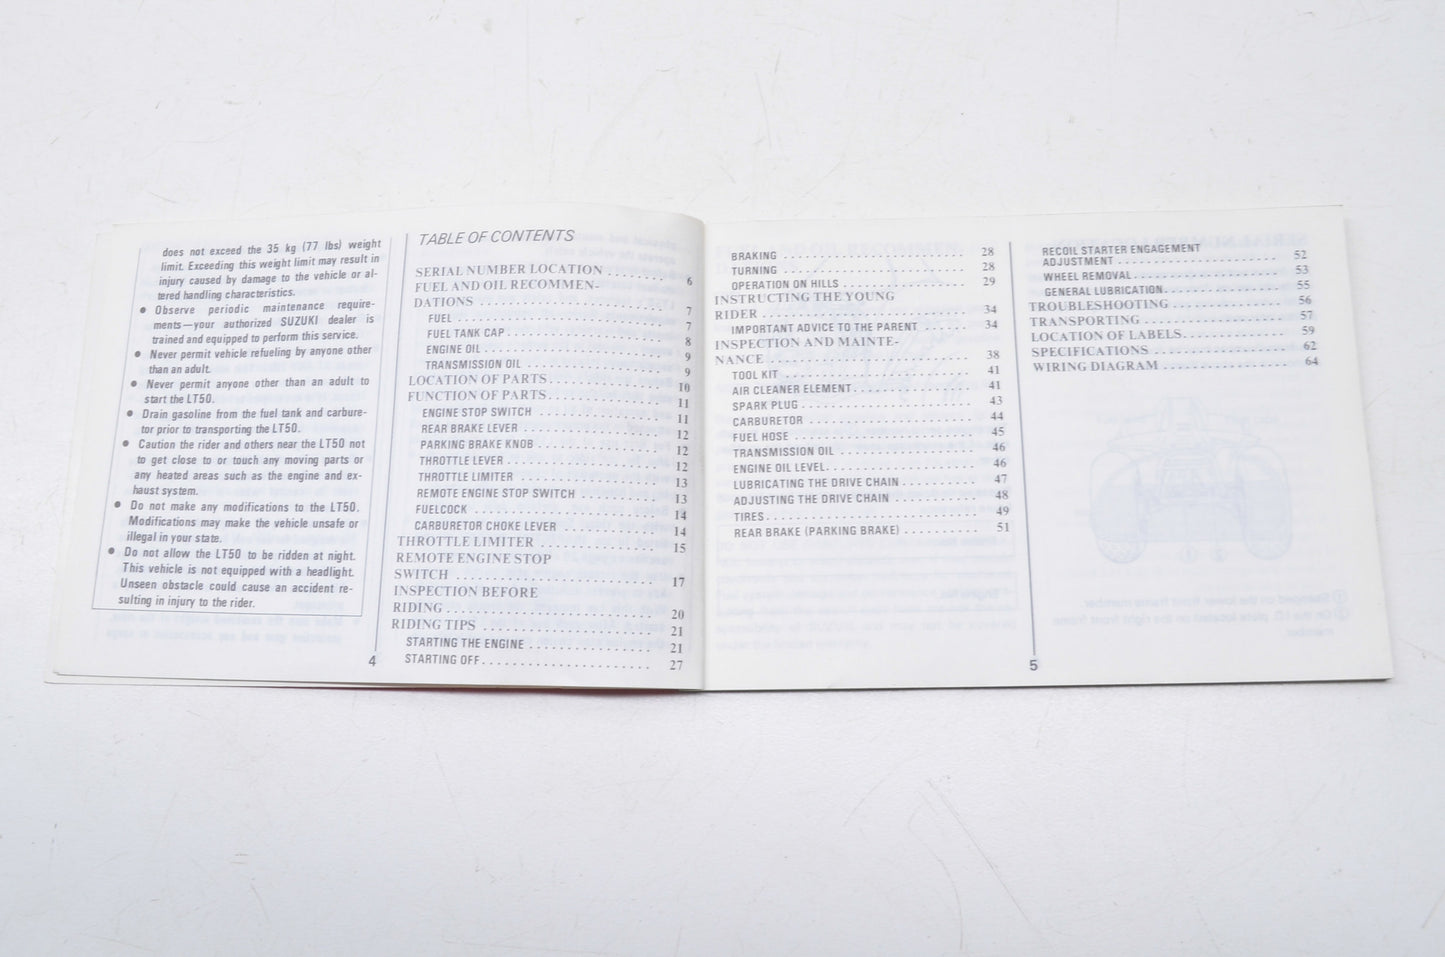 does not exceed the 35 kg (77 lbs) weight
limit. Exceeding this weight limit may result in
injury caused by damage to the vehicle or al-
tered handling characteristics.
● Observe periodic maintenance require-
ments—your authorized SUZUKI dealer is
trained and equipped to perform this service.
● Never permit vehicle refueling by anyone other
than an adult.
● Never permit anyone other than an adult to
start the LT50.
● Drain gasoline from the fuel tank and carbure-
tor prior to transporting the LT50.
● Caution the rider and others near the LT50 not
to get close to or touch any moving parts or
any heated areas such as the engine and ex-
haust system.
● Do not make any modifications to the LT50.
Modifications may make the vehicle unsafe or
illegal in your state.
● Do not allow the LT50 to be ridden at night.
This vehicle is not equipped with a headlight.
Unseen obstacle could cause an accident re-
sulting in injury to the rider.
4
TABLE OF CONTENTS
SERIAL NUMBER LOCATION ........ 6
FUEL AND OIL RECOMMEN-
DATIONS ........ 7
FUEL ........ 7
FUEL TANK CAP ........ 8
ENGINE OIL ........ 9
TRANSMISSION OIL ........ 9
LOCATION OF PARTS ........ 10
FUNCTION OF PARTS ........ 11
ENGINE STOP SWITCH ........ 11
REAR BRAKE LEVER ........ 12
PARKING BRAKE KNOB ........ 12
THROTTLE LEVER ........ 12
THROTTLE LIMITER ........ 13
REMOTE ENGINE STOP SWITCH ........ 13
FUELCOCK ........ 14
CARBURETOR CHOKE LEVER ........ 14
THROTTLE LIMITER ........ 15
REMOTE ENGINE STOP
SWITCH ........ 17
INSPECTION BEFORE
RIDING ........ 20
RIDING TIPS ........ 21
STARTING THE ENGINE ........ 21
STARTING OFF ........ 27
BRAKING ........ 28
TURNING ........ 28
OPERATION ON HILLS ........ 29
INSTRUCTING THE YOUNG
RIDER ........ 34
IMPORTANT ADVICE TO THE PARENT ...... 34
INSPECTION AND MAINTE-
NANCE ........ 38
TOOL KIT ........ 41
AIR CLEANER ELEMENT ........ 41
SPARK PLUG ........ 43
CARBURETOR ........ 44
FUEL HOSE ........ 45
TRANSMISSION OIL ........ 46
ENGINE OIL LEVEL ........ 46
LUBRICATING THE DRIVE CHAIN ........ 47
ADJUSTING THE DRIVE CHAIN ........ 48
TIRES ........ 49
REAR BRAKE (PARKING BRAKE) ........ 51
5
RECOIL STARTER ENGAGEMENT
ADJUSTMENT ........ 52
WHEEL REMOVAL ........ 53
GENERAL LUBRICATION ........ 55
TROUBLESHOOTING ........ 56
TRANSPORTING ........ 57
LOCATION OF LABELS ........ 59
SPECIFICATIONS ........ 62
WIRING DIAGRAM ........ 64